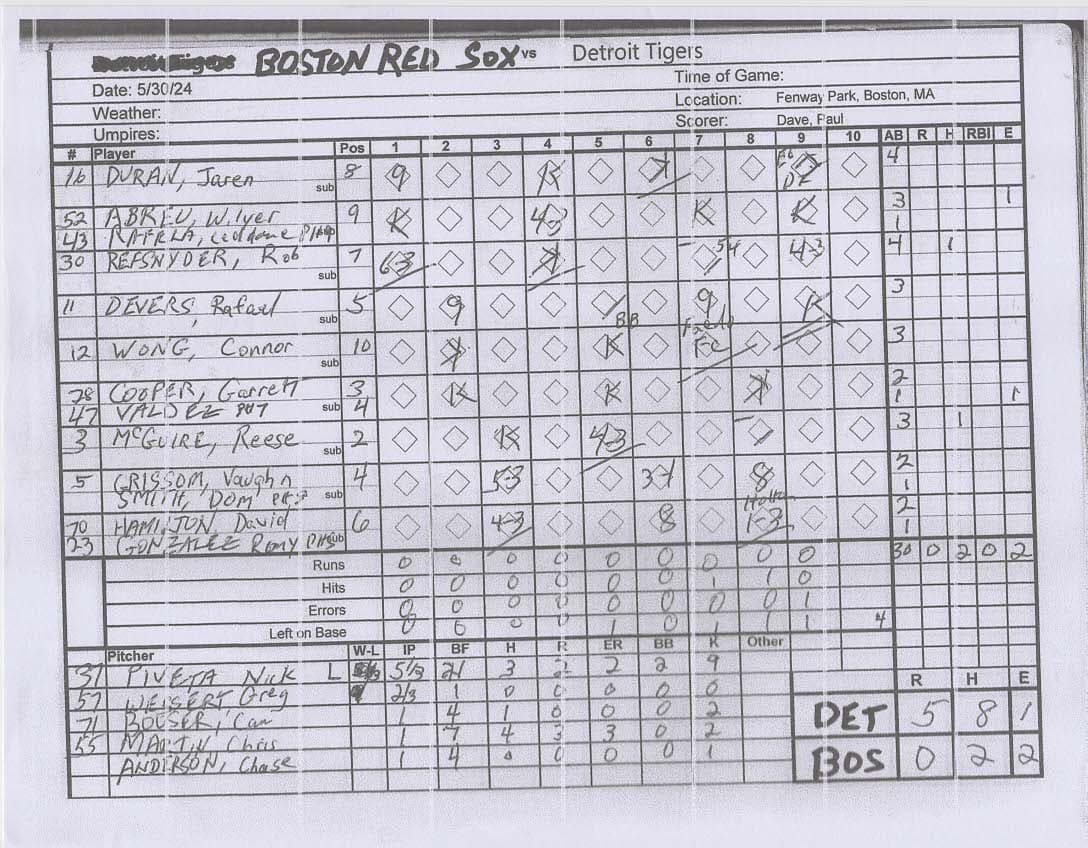 BOSTON RED SOX vs Detroit Tigers
Date: 5/30/24 Time of Game:
Weather: Location: Fenway Park, Boston, MA
Umpires: Scorer: Dave, Paul
# Player Pos 1 2 3 4 5 6 7 8 9 10 AB R H RBI E
16 DURAN, Jaren sub 8 9 K 4
52 ABREU, Wilyer 9 K 4-3 K K 3 1
43 1
30 REFSNYDER, Rob sub 7 6-3 4-3 4 1
11 DEVERS, Rafael sub 5 9 BB 9 K 3
12 WONG, Connor sub 10 K FC 3
28 COOPER, Garrett 3 K K 2
47 VALDEZ sub 4 1 1
3 McGUIRE, Reese sub 2 K 4-3 3 1
5 GRISSOM, Vaughn 4 5-3 8 2
SMITH, DOM sub 1
70 HAMILTON, David 6 4-3 8 1-3 2
23 GONZALEZ Romy sub 1
30 0 2 0 2
Runs 0 0 0 0 0 0 0 0 0
Hits 0 0 0 0 0 0 1 1 0
Errors 0 0 0 0 0 0 0 0 1
Left on Base 0 0 0 0 1 0 1 1 1 4
Pitcher W-L IP BF H R ER BB K Other
37 PIVETA Nick L 5 1/3 21 3 2 2 2 9
57 WEISERT, Greg 2/3 1 0 0 0 0 0
71 BOOSER, Cam 1 4 1 0 0 0 2
55 MARTIN, Chris 1 7 4 3 3 0 2
ANDERSON, Chase 1 4 0 0 0 0 1
R H E
DET 5 8 1
BOS 0 2 2